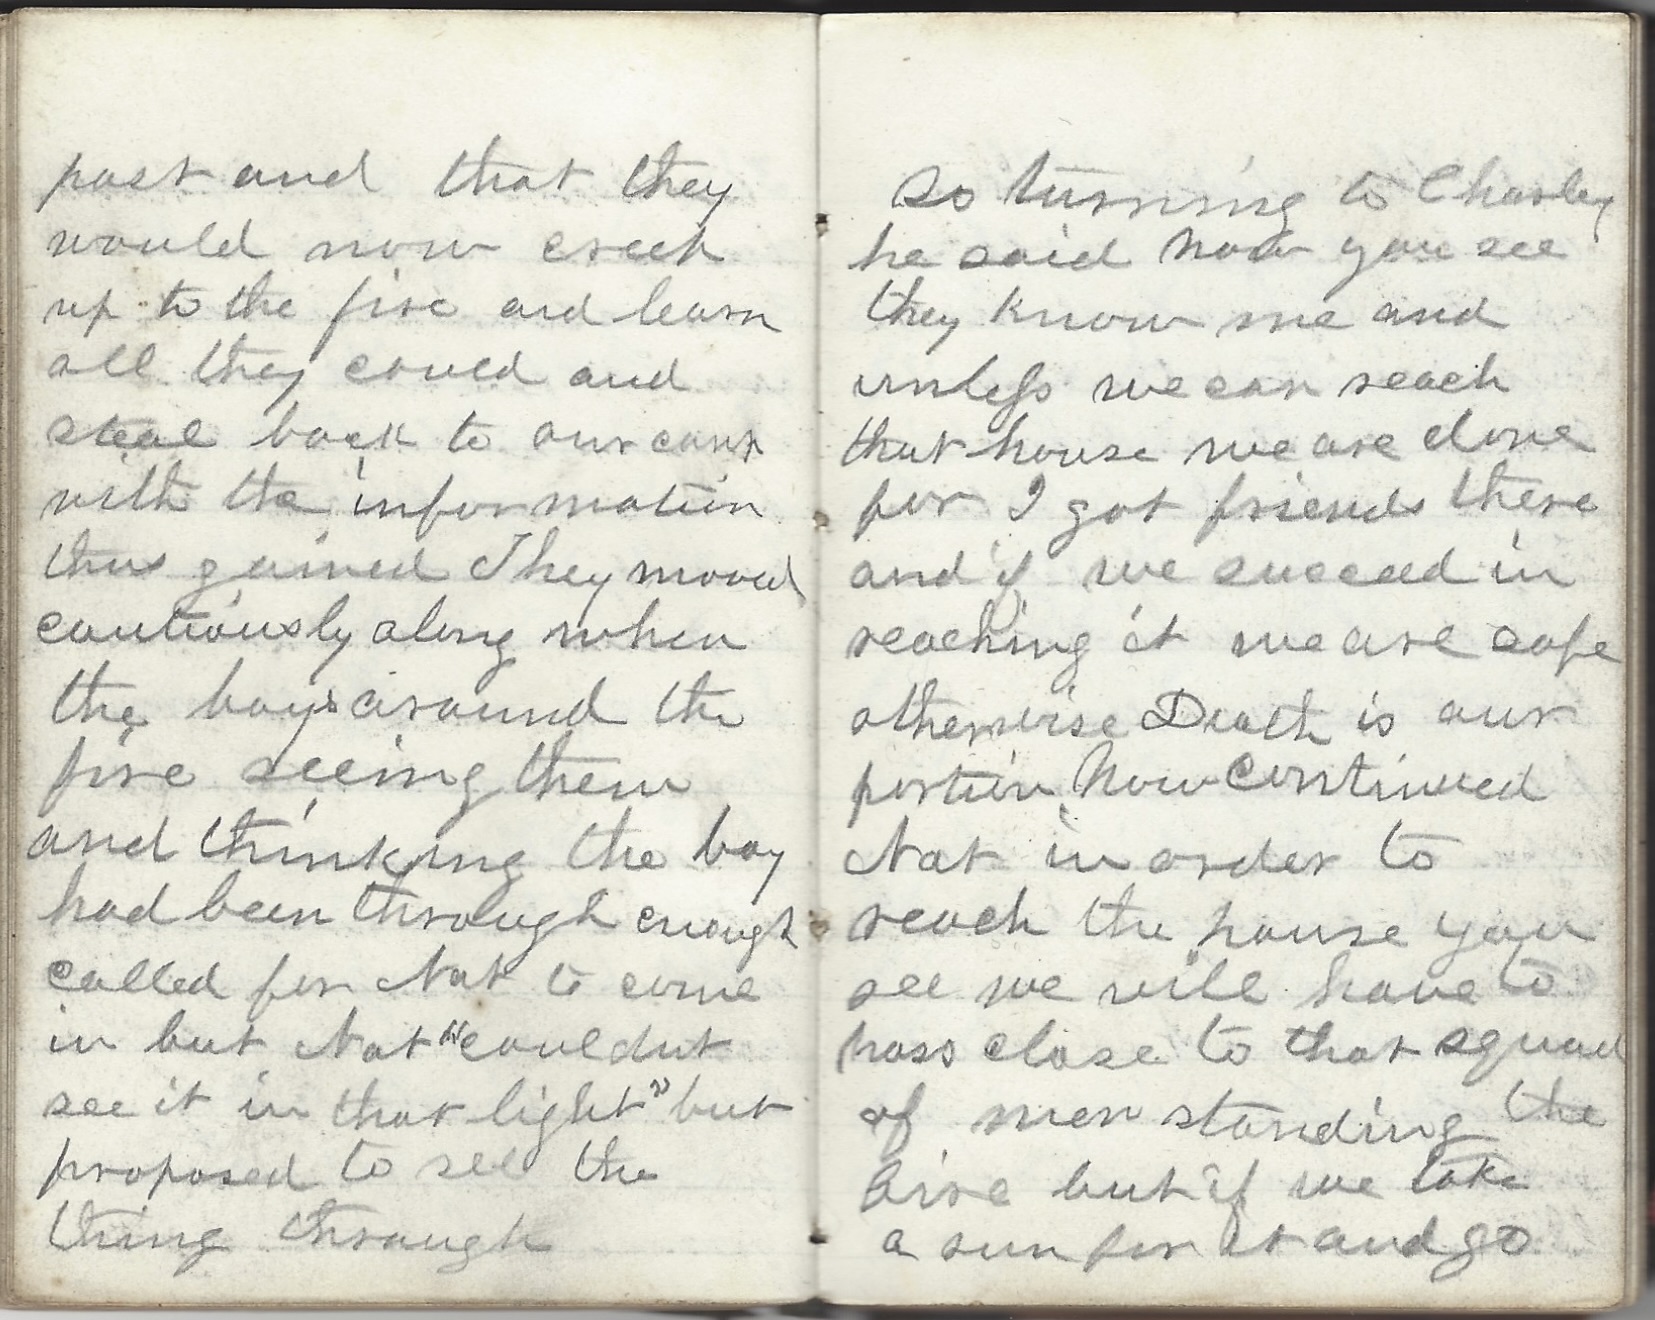 past and that they
would now creek
up to the fire and learn
all they could and
steal back to our camp
with the information
thus gained They moved
cautiously along when
the boys around the
fire seeing them
and thinking the boy
had been through enough
called for Nat to come
in but Nat "couldnt
see it in that light" but
proposed to see the
thing through
So turning to Charley
he said now you see
they know me and
unless we can reach
that house we are done
for I got friends there
and if we succeed in
reaching it we are safe
otherwise Death is our
portion Now continued
Nat in order to
reach the house you
see we will have to
pass close to that squad
of men standing the
fire but if we take
a run for it and go